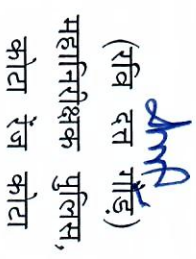 (रवि दत्त गौड़)
महानिरीक्षक पुलिस,
कोटा रेंज कोटा